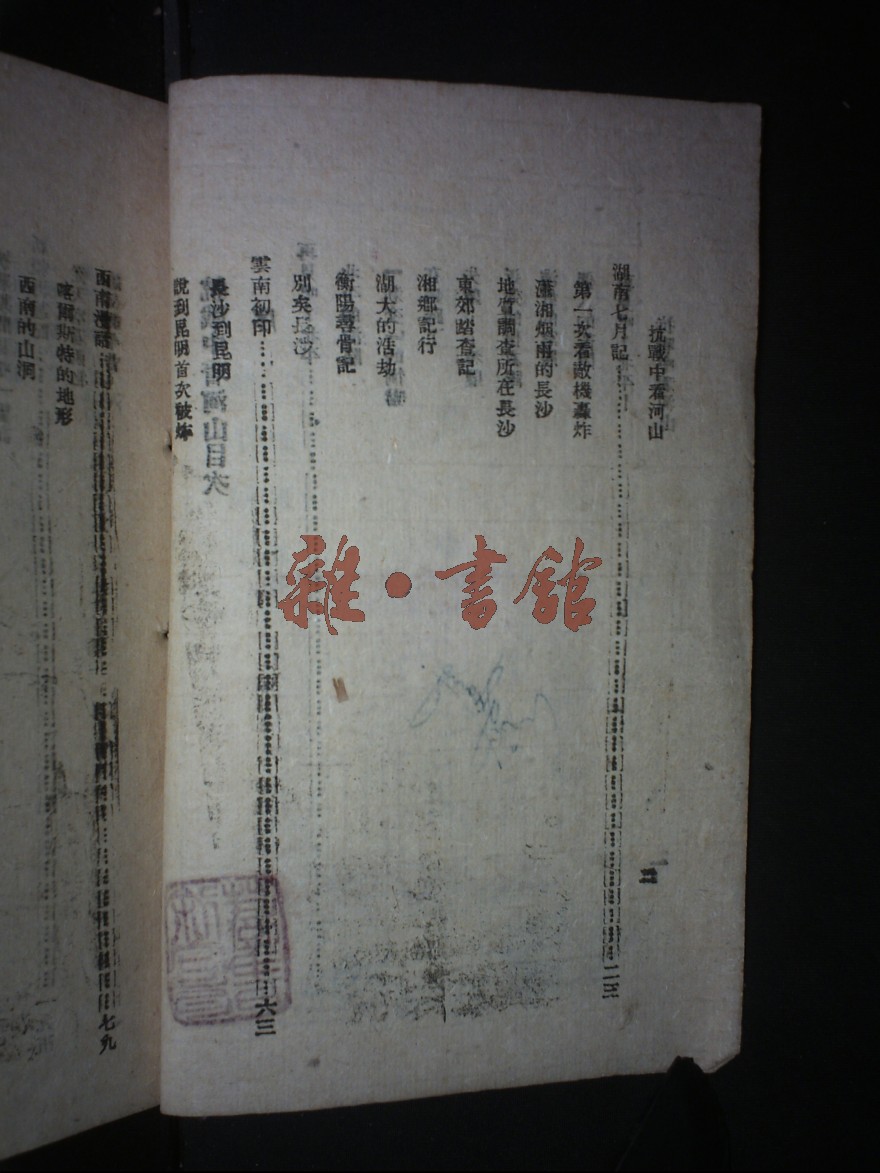 抗戰中看河山
湖南七月記……二三
第一次看敵機轟炸
瀟湘烟雨的長沙
地質調查所在長沙
東郊踏查記
湘鄉記行
湖大的浩劫
衡陽尋骨記
別矣長沙
雲南初印……六三
長沙到昆明
說到昆明首次被炸
西南漫話……七九
喀爾斯特的地形
西南的山洞
雜·書館